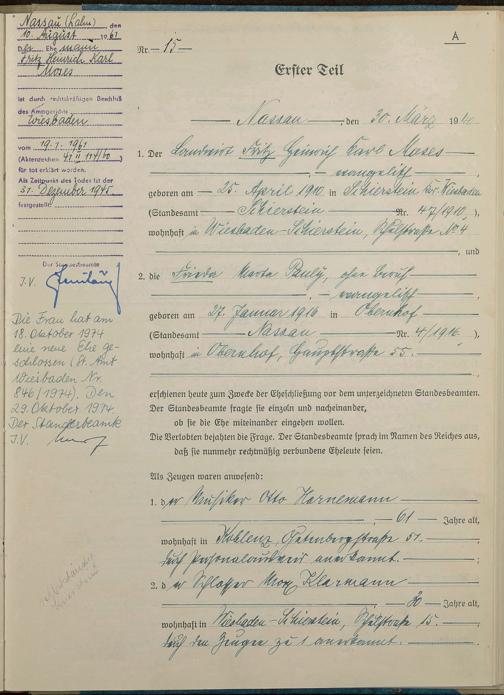 Nassau (Lahn), den
10. August 1961
Der Ehemann
Fritz Heinrich Karl
Moses
ist durch rechtskräftigen Beschluß
des Amtsgerichts
Wiesbaden
vom 19.1.1961
(Aktenzeichen 41 II 114/60)
für tot erklärt worden.
Als Zeitpunkt des Todes ist der
31. Dezember 1945
festgestellt.
Der Standesbeamte
J.V.
Die Frau hat am
18. Oktober 1974
eine neue Ehe ge-
schlossen (St. Amt
Wiesbaden Nr.
846/1974). Den
29. Oktober 1974.
Der Standesbeamte
J.V.
A
Nr. 15
Erster Teil
Nassau, den 30. März 19
1. Der Landwirt Fritz Heinrich Karl Moses
evangelisch
geboren am 25. April 1910 in Schierstein Kr. Wiesbaden
(Standesamt Schierstein Nr. 47/1910),
wohnhaft in Wiesbaden-Schierstein, Schulstraße No 4
, und
2. die Frieda Marta Pauly, ohne Beruf
evangelisch
geboren am 27. Januar 1916 in Obernhof
(Standesamt Nassau Nr. 4/1916),
wohnhaft in Obernhof, Hauptstraße 55.
erschienen heute zum Zwecke der Eheschließung vor dem unterzeichneten Standesbeamten.
Der Standesbeamte fragte sie einzeln und nacheinander,
ob sie die Ehe miteinander eingehen wollen.
Die Verlobten bejahten die Frage. Der Standesbeamte sprach im Namen des Reiches aus,
daß sie nunmehr rechtmäßig verbundene Eheleute seien.
Als Zeugen waren anwesend:
1. der Musiker Otto Hornemann
, 61 Jahre alt,
wohnhaft in Koblenz, Gutenbergstraße 51.
durch Personalausweis anerkannt.
2. der Schlosser Max Klarmann
, 30 Jahre alt,
wohnhaft in Wiesbaden-Schierstein, Schulstraße 15.
durch den Zeugen zu 1 anerkannt.